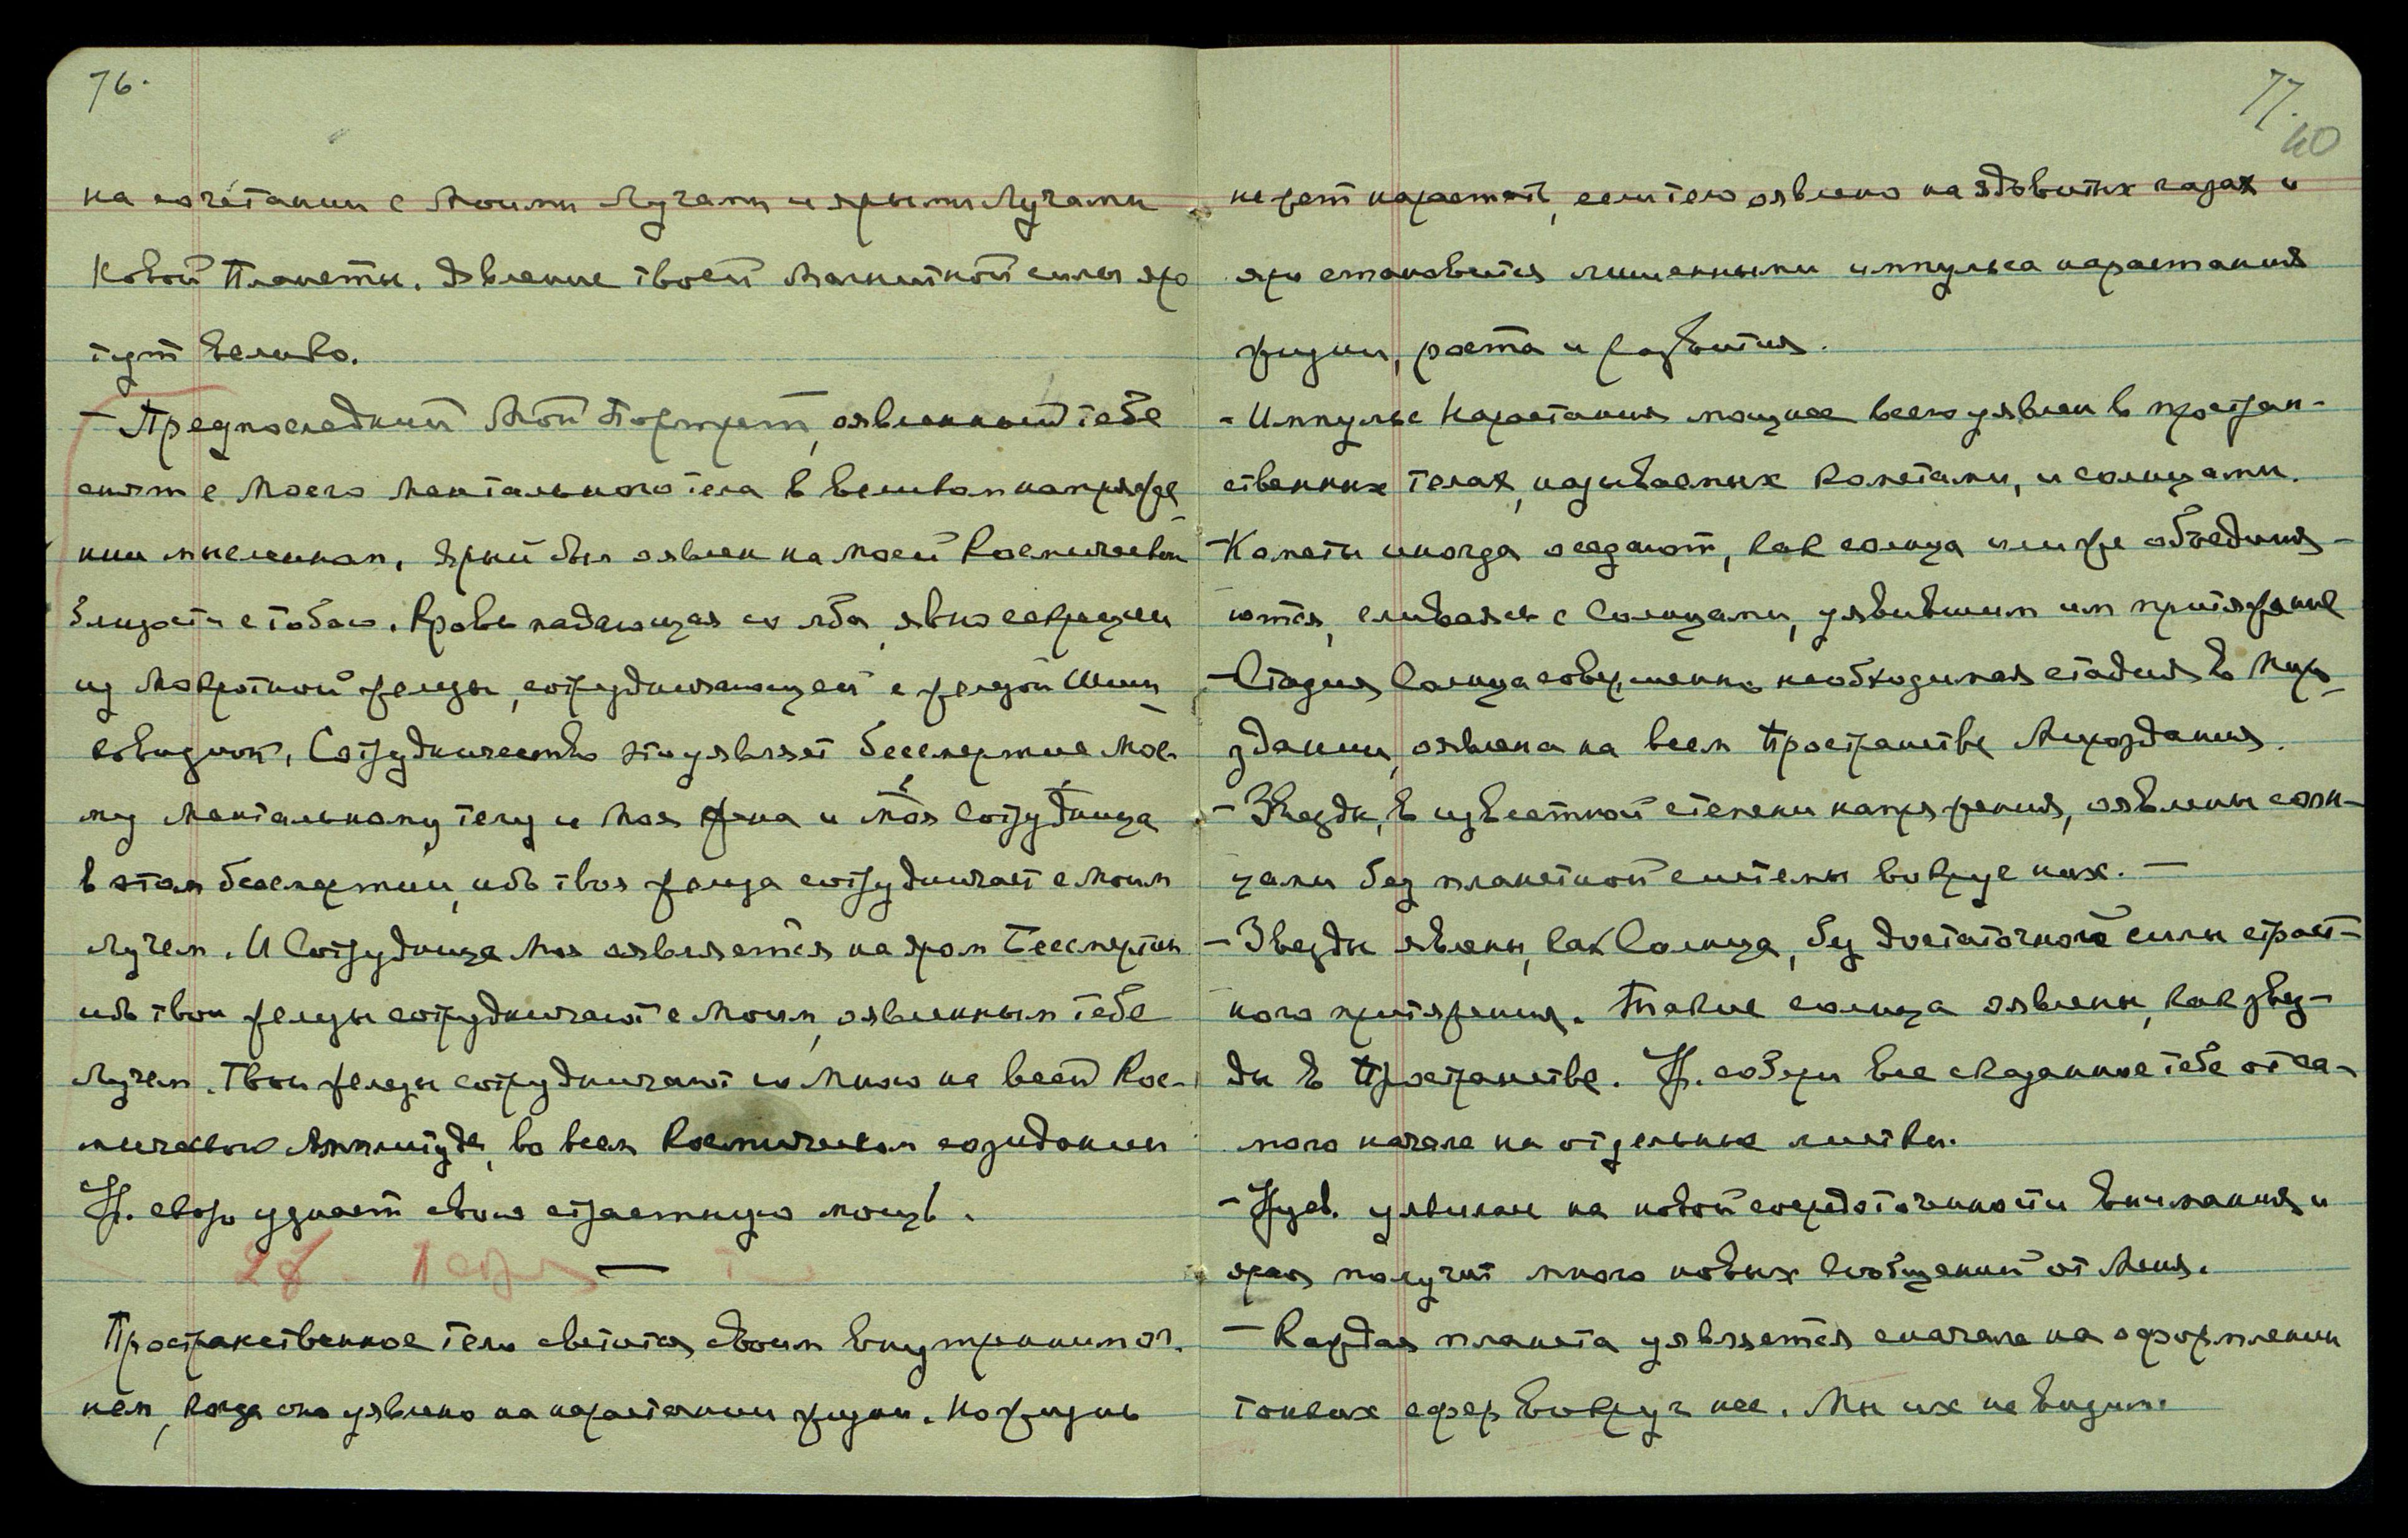 76.
на сочетании с Моими Лучами и ярыми Лучами
Новой Планеты. Явление твоей Магнитной силы яро
тут велико.
— Предпоследний Мой Портрет, оявленный тебе
снят с Моего Ментального тела в великом напряже-
нии мысленном. Ярый был оявлен на Моей Космической
Близости с тобою. Кровь падающая со лба, явно
из Мокротной железы, сотрудничающей с железой Шиш-
ковидной. Сотрудничество это уявляет бессмертие Мое-
му Ментальному телу и Моя Жена и Моя Сотрудница
в этом бессмертии, ибо твоя железа сотрудничает с Моим
Лучем. И Сотрудница Моя оявляется на яром Бессмертии
ибо твои железы сотрудничают с Моим, оявленным тебе
Лучем. Твои железы сотрудничают со Мною на всей Кос-
мической Амплитуде, во всем Космическом созидании
У. скоро узнает свою страстную мощь.
28
—
Пространственное тело светится своим внутренним ог-
нем, когда оно уявлено на нарастании жизни. Но жизнь
77.
40
не может нарастать, если тело оявлено на ядовитых газах и
яро становится лишенными импульса нарастания
жизни, роста и развития.
- Импульс Нарастания мощнее всего уявлен в простран-
ственных телах, называемых Кометами, и солнцами.
- Кометы иногда оседают, как солнца или же объединя-
ются, сливаясь с Солнцами, уявившим им притяжение
- Стадия Солнца совершенно необходимая стадия в Миро-
здании, оявлена на всем Пространстве Мироздания.
- Звезды, в известной степени напряжения, оявлены солн-
цами без планетной системы вокруг них. —
- Звезды явлены, как Солнца, без достаточной силы страст-
ного притяжения. Такие солнца оявлены, как звез-
ды в Пространстве. У. собери все сказанное тебе от са-
мого начала на отдельные листки.
- уявлении на новой сосредоточенности внимания и
ярая получит много новых Сообщений от Меня.
— Каждая планета уявляется сначала на оформлении
тонких сфер вокруг нее. Мы их не видим.